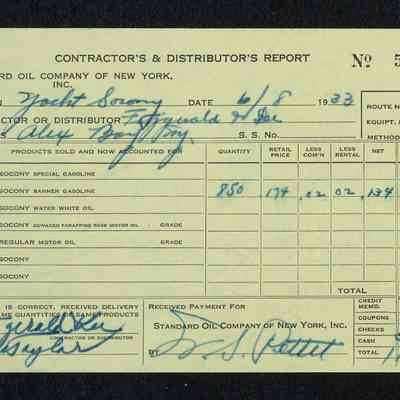 CONTRACTOR'S & DISTRIBUTOR'S REPORT Nº 5
RD OIL COMPANY OF NEW YORK,
INC.
N Yacht Socony DATE 6/8 1933
ROUTE NO
CTOR OR DISTRIBUTOR Fitzgerald & Lee
EQUIPT.
Alex Bay S. S. NO.
METHOD
PRODUCTS SOLD AND NOW ACCOUNTED FOR QUANTITY RETAIL PRICE LESS COM'N LESS RENTAL NET
SOCONY SPECIAL GASOLINE
SOCONY BANNER GASOLINE 850 .174 .02 .02 .134
SOCONY WATER WHITE OIL
SOCONY (DEWAXED PARAFFINE BASE MOTOR OIL) GRADE
REGULAR MOTOR OIL GRADE
SOCONY
SOCONY
TOTAL
IS CORRECT, RECEIVED DELIVERY
SAME QUANTITIES OF SAME PRODUCTS
gerald Lee
CONTRACTOR OR DISTRIBUTOR
RECEIVED PAYMENT FOR
STANDARD OIL COMPANY OF NEW YORK, INC.
BY S. Pettet
CREDIT MEMO.
COUPONS
CHECKS
CASH
TOTAL